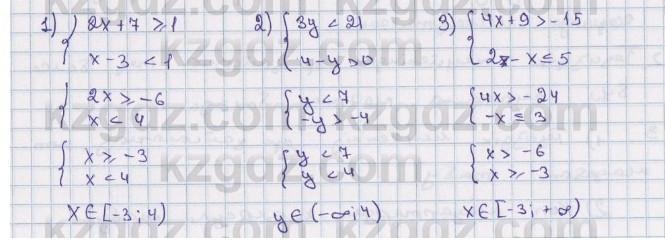 1) { 2x + 7 ≥ 1
x - 3 < 1
{ 2x ≥ -6
x < 4
{ x ≥ -3
x < 4
x ∈ [-3; 4)
2) { 3y < 21
4 - y > 0
{ y < 7
-y > -4
{ y < 7
y < 4
y ∈ (-∞; 4)
3) { 4x + 9 > -15
2 - x ≤ 5
{ 4x > -24
-x ≤ 3
{ x > -6
x ≥ -3
x ∈ [-3; +∞)
kzgdz.com